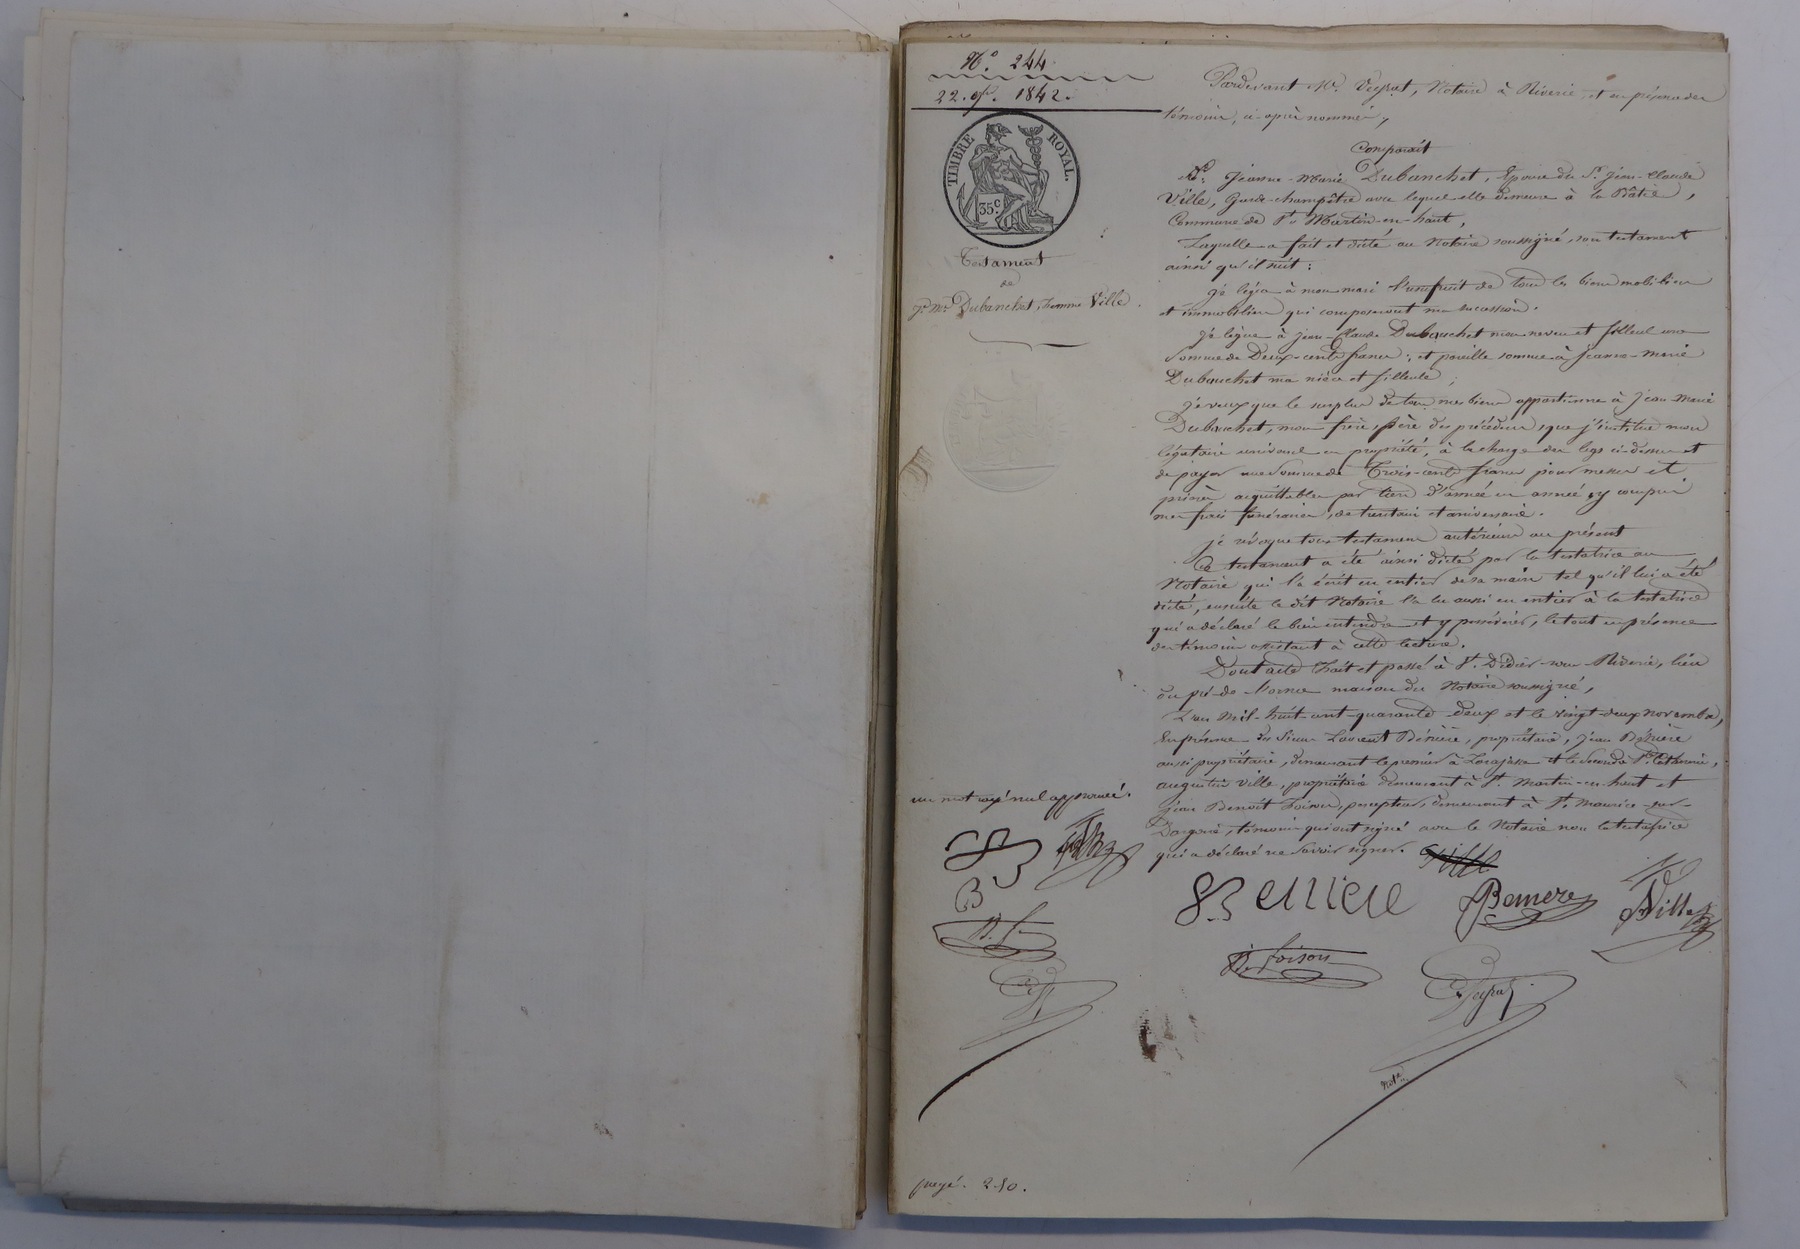 N.o 244.
22. 9bre. 1842.
TIMBRE ROYAL.
35.c
Testament
de
Je. Mie. Dubanchet, femme Ville.
Pardevant Me. Verpat, Notaire à Riverie, et en présence des
témoins, ci-après nommés,
Comparaît
De. Jeanne-Marie Dubanchet, Epouse du Sr. Jean-Claude
Ville, Garde-champêtre avec lequel elle demeure à la Bâtie,
Commune de St. Martin-en-haut,
Laquelle a fait et dicté au Notaire soussigné, son testament
ainsi qu'il suit:
je lègue à mon mari l'usufruit de tous les biens mobiliers
et immobiliers qui composeront ma succession.
je lègue à jean-Claude Dubanchet mon neveu et filleul une
Somme de Deux-cents francs; et pareille somme à jeanne-marie
Dubanchet ma nièce et filleule;
je veux que le surplus de tous mes biens appartienne à jean-marie
Dubanchet, mon frère, père des précédens, que j'institue mon
légataire universel en propriété, à la charge des legs ci-dessus et
de payer une Somme de Trois-cents francs pour messes et
prières acquittables par tiers d'année en année, y compris
mes frais funéraires, de trentain et aniversaire.
je révoque tous testamens antérieurs au présent
Ce testament a été ainsi dicté par la testatrice au
Notaire qui l'a écrit en entier de sa main tel qu'il lui a été
dicté, ensuite le dit Notaire l'a lu aussi en entier à la testatrice
qui a déclaré le bien entendre et y persévérer, le tout en présence
des témoins assistant à cette lecture.
Dont acte Fait et passé à St. Didier-sous-Riverie, lieu
du pré-de maison du Notaire soussigné,
L'an Mil-huit-cent-quarante-deux et le vingt-deux novembre,
En présence des Sieurs Laurent Bénière, propriétaire, jean Bénière
aussi propriétaire, demeurant le premier à Larajasse et le second à Ste. Catherine,
augustin Ville, propriétaire demeurant à St. Martin-en-haut et
jean Benoit Foison, percepteur, demeurant à St. Maurice-sur-
Dargoire, témoins qui ont signé avec le Notaire non la testatrice
qui a déclaré ne Savoir signer.
un mot rayé nul approuvé.
B erriere
Beniere
Ville
Foison
Verpat
Notre
payé. 2.50.